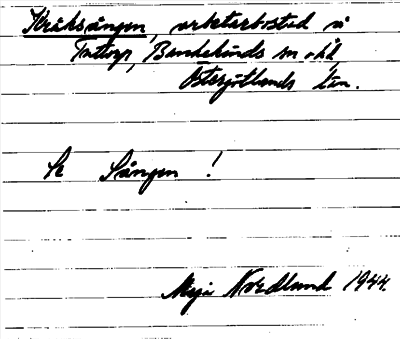 Kråksången, arbetarbostad på
Tuttorp, Bankekinds sn o hd,
Östergötlands län.
Se Sången!
Maja Nordlund 1944.